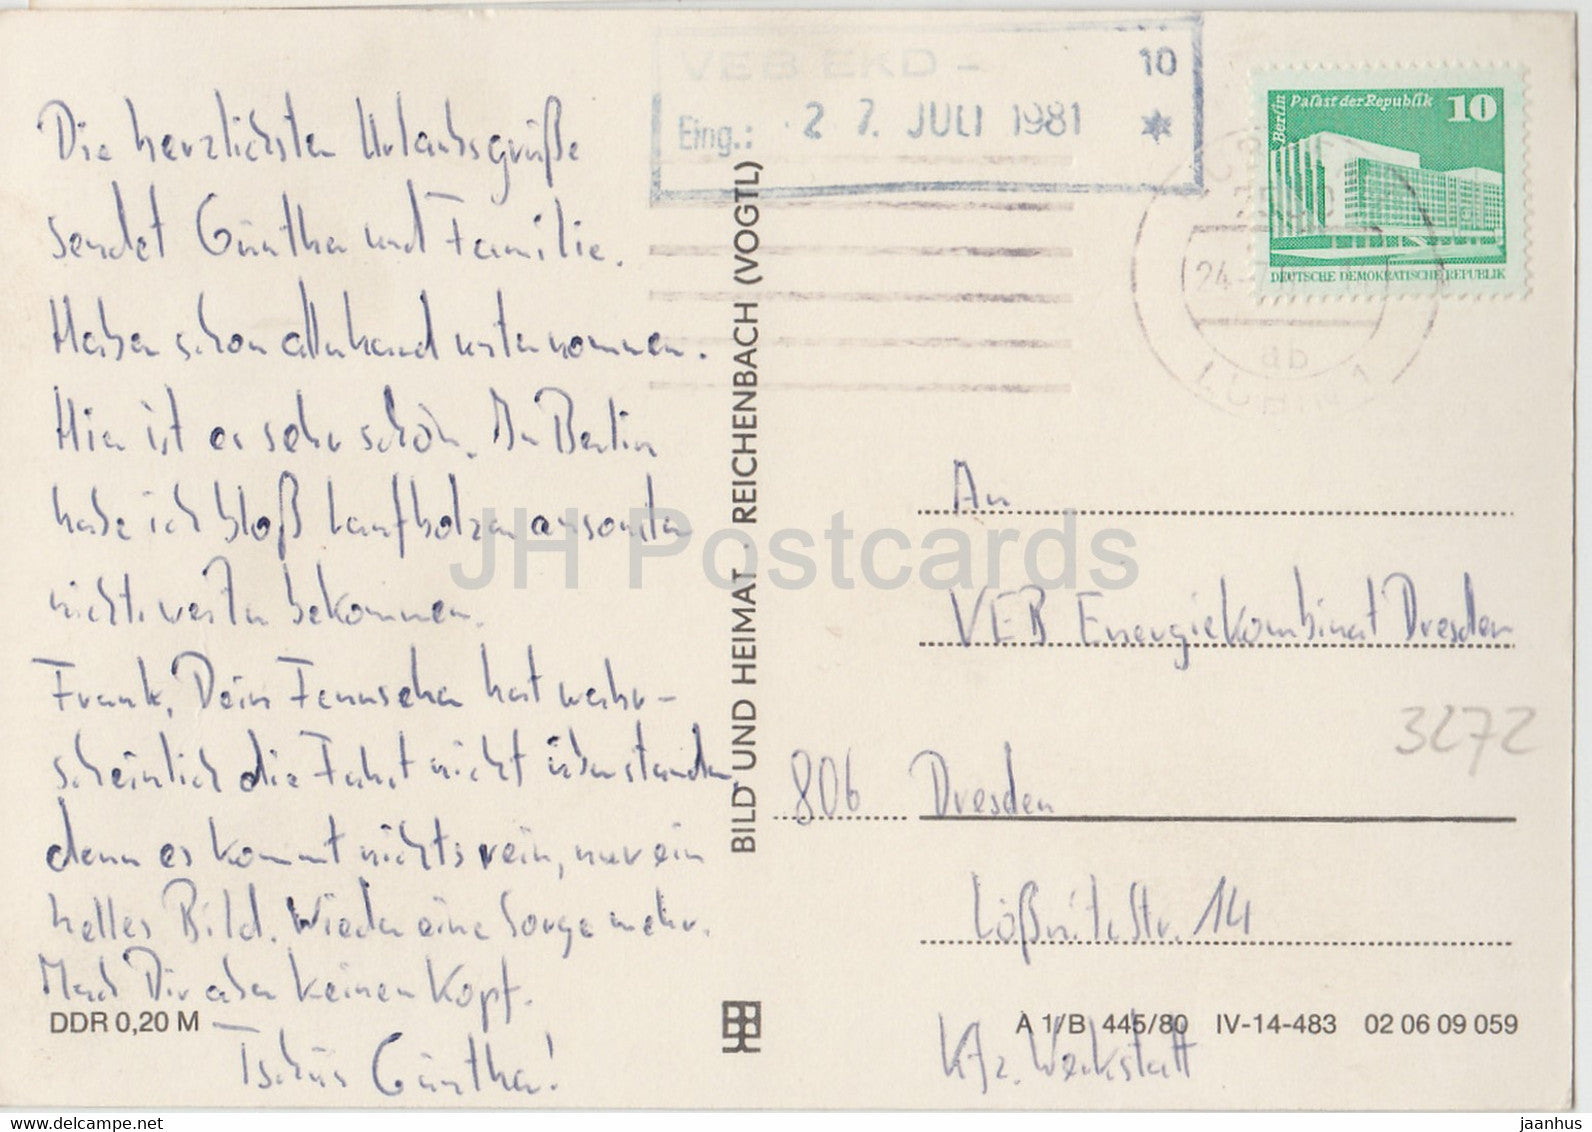 Die herzlichsten Urlaubsgrüße
sendet Günther und Familie.
Haben schon allerhand unternommen.
Hier ist es sehr schön. In Berlin
habe ich bloß Laufbolzen ansonsten
nichts weiter bekommen.
Frank, Dein Fernseher hat wahr-
scheinlich die Fahrt nicht überstanden
denn es kommt nichts rein, nur ein
helles Bild. Wieder eine Sorge mehr.
Mach Dir aber keinen Kopf.
Tschüs Günther!
DDR 0,20 M
BILD UND HEIMAT · REICHENBACH (VOGTL)
VEB EKD -
10
Eing.: 27. JULI 1981 *
Berlin Palast der Republik 10
DEUTSCHE DEMOKRATISCHE REPUBLIK
24
ab
An
VEB Energiekombinat Dresden
3272
806 Dresden
Lößnitzstr. 14
Kfz. Werkstatt
A 1/B 445/80 IV-14-483 02 06 09 059
JH Postcards
www.delcampe.net
jaanhus